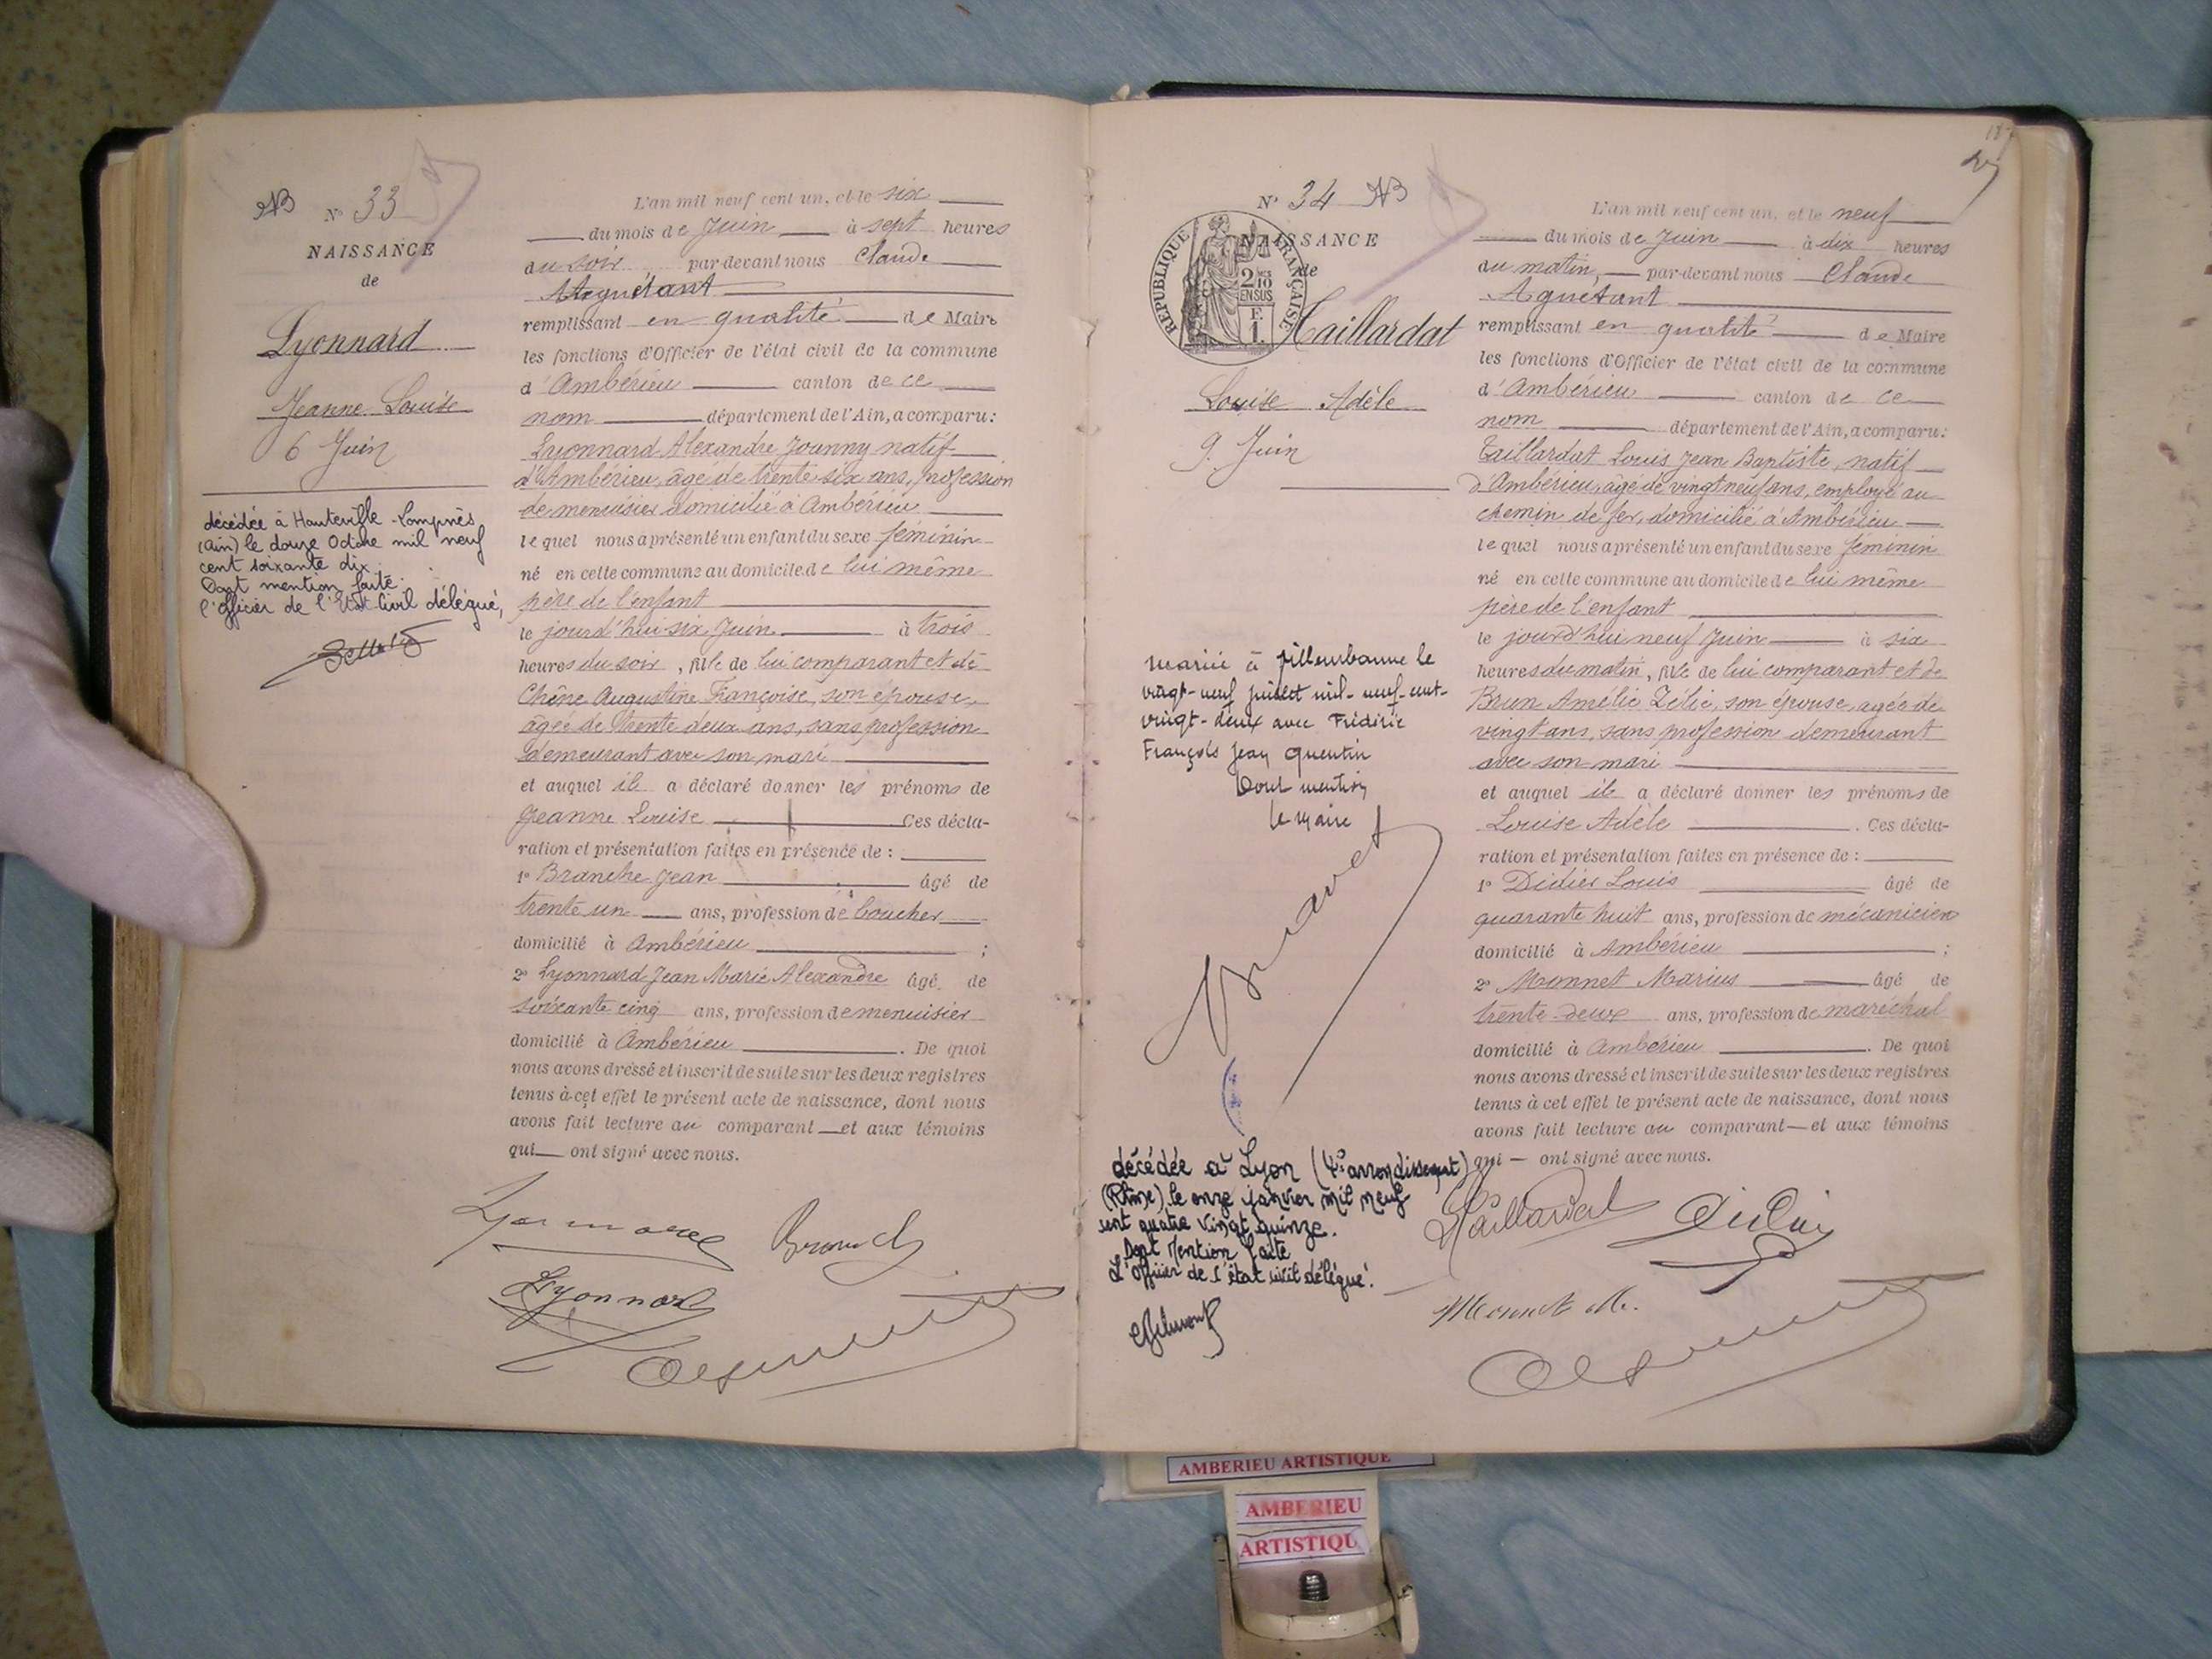 AB N° 33
NAISSANCE
de
Lyonnard
Jeanne Louise
6 Juin
décédée à Hauteville-Lompnès
(Ain) le douze Octobre mil neuf
cent soixante dix.
Dont mention faite.
l'Officier de l'Etat-Civil délégué,
L'an mil neuf cent un, et le six
du mois de Juin à sept heures
du soir par-devant nous Claude
Aguétant
remplissant en qualité de Maire
les fonctions d'Officier de l'état civil de la commune
d'Ambérieu canton de ce
nom département de l'Ain, a comparu:
Lyonnard Alexandre Joanny natif
d'Ambérieu, âgé de trente six ans, profession
de menuisier domicilié à Ambérieu
lequel nous a présenté un enfant du sexe féminin
né en cette commune au domicile de lui même
père de l'enfant
le jourd'hui six Juin à trois
heures du soir, fille de lui comparant et de
Chêne Augustine Françoise, son épouse,
âgée de trente deux ans, sans profession
demeurant avec son mari
et auquel il a déclaré donner les prénoms de
Jeanne Louise Ces décla-
ration et présentation faites en présence de :
1° Branche Jean âgé de
trente un ans, profession de boucher
domicilié à Ambérieu ;
2° Lyonnard Jean Marie Alexandre âgé de
soixante cinq ans, profession de menuisier
domicilié à Ambérieu . De quoi
nous avons dressé et inscrit de suite sur les deux registres
tenus à cet effet le présent acte de naissance, dont nous
avons fait lecture au comparant et aux témoins
qui ont signé avec nous.
Lyonnard
N° 34 AB
NAISSANCE
de
REPUBLIQUE FRANÇAISE
2
10
EN SUS
F.
1.
Taillardat
Louise Adèle
9. Juin
mariée à Villeurbanne le
vingt-neuf juillet mil-neuf-cent-
vingt-deux avec Frédéric
François Jean Quentin
Dont mention
le maire
décédée à Lyon (4e arrondissement)
(Rhône) le onze janvier mil neuf
cent quatre vingt quinze.
Dont Mention faite
L'Officier de l'état civil délégué.
27
L'an mil neuf cent un, et le neuf
du mois de Juin à dix heures
du matin, par-devant nous Claude
Aguétant
remplissant en qualité de Maire
les fonctions d'Officier de l'état civil de la commune
d'Ambérieu canton de ce
nom département de l'Ain, a comparu:
Taillardat Louis Jean Baptiste, natif
d'Ambérieu, âgé de vingt neuf ans, employé au
chemin de fer, domicilié à Ambérieu
lequel nous a présenté un enfant du sexe féminin
né en cette commune au domicile de lui même
père de l'enfant
le jourd'hui neuf Juin à six
heures du matin, fille de lui comparant et de
Brun Amélie Zélie, son épouse, agée de
vingt ans, sans profession demeurant
avec son mari
et auquel il a déclaré donner les prénoms de
Louise Adèle . Ces décla-
ration et présentation faites en présence de :
1° Didier Louis âgé de
quarante huit ans, profession de mécanicien
domicilié à Ambérieu ;
2° Monnet Marius âgé de
trente-deux ans, profession de maréchal
domicilié à Ambérieu . De quoi
nous avons dressé et inscrit de suite sur les deux registres
tenus à cet effet le présent acte de naissance, dont nous
avons fait lecture au comparant et aux témoins
qui ont signé avec nous.
Taillardat Didier
Monnet M.
AMBERIEU ARTISTIQUE
AMBERIEU
ARTISTIQU